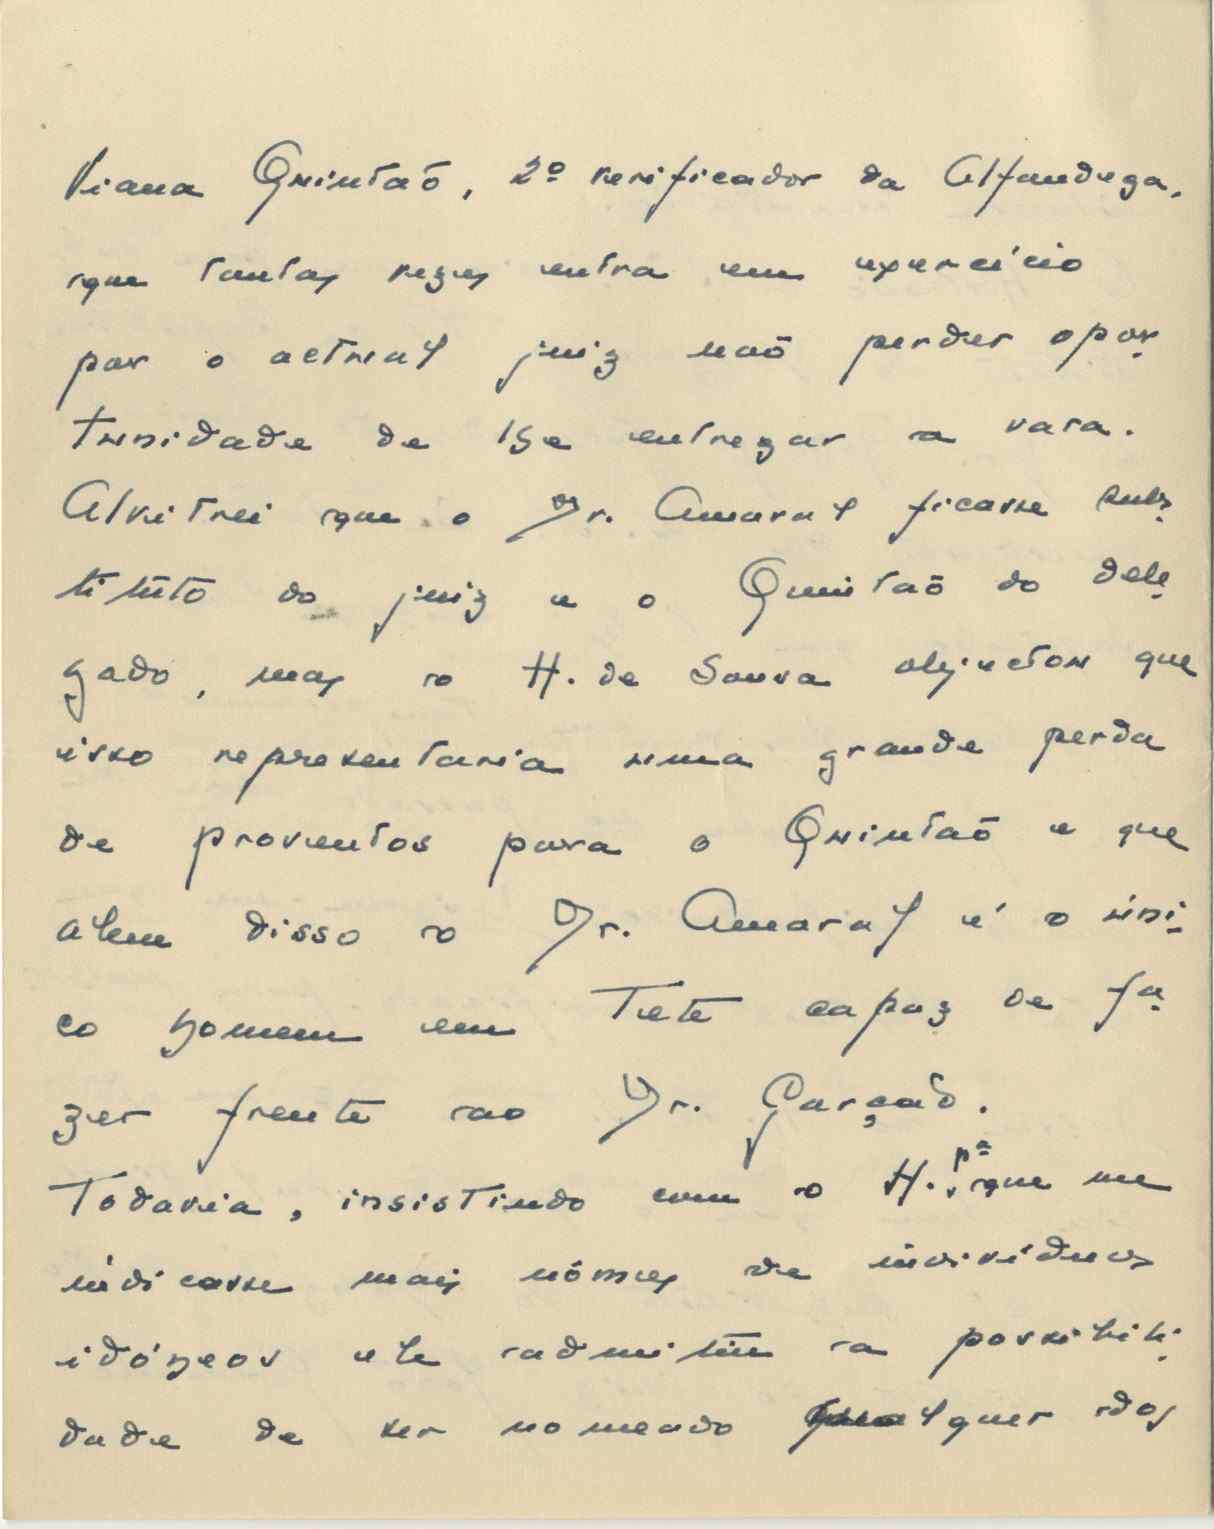 Viana Quintaõ, 2º verificador da Alfandega,
que tantas vezes entra em exercício
por o actual juiz naõ perder opor-
tunidade de lhe entregar a vara.
Alvitrei que o Dr. Amaral ficasse subs-
tituto do juiz e o Quintaõ do dele-
gado, mas o H. de Sousa objectou que
isso representaria uma grande perda
de proventos para o Quintaõ e que
alem disso o Dr. Amaral é o úni-
co homem em Tete capaz de fa-
zer frente ao Dr. Garçaõ.
Todavia, insistindo com o H. pª que me
indicasse mais nómes de indivíduos
idóneos ele admitiu a possibili-
dade de ser nomeado qualquer dos